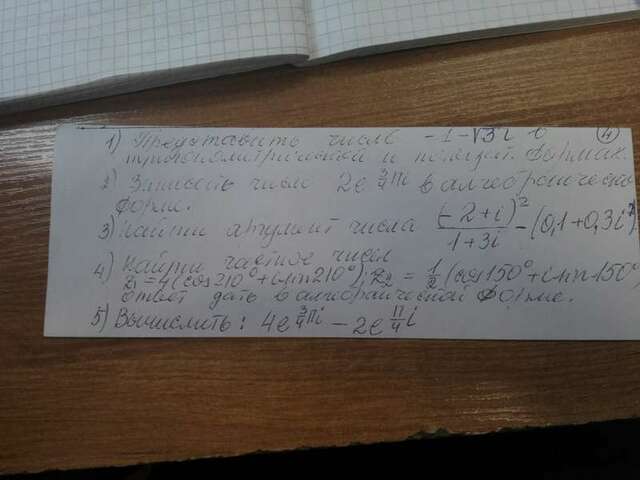 ④
1) Представить число -1-√3 i в
тригонометрической и показат. формах.
2) Записать число 2e^{3/4 πi} в алгебраической
форме.
3) Найти аргумент числа (-2+i)²/(1+3i) - (0,1+0,3i
4) Найти частное чисел
z₁=4(cos210°+isin210°); z₂ = 1/2 (cos150°+isin150°
ответ дать в алгебраической форме.
5) Вычислить: 4e^{3/4 πi} - 2e^{π/4 i}